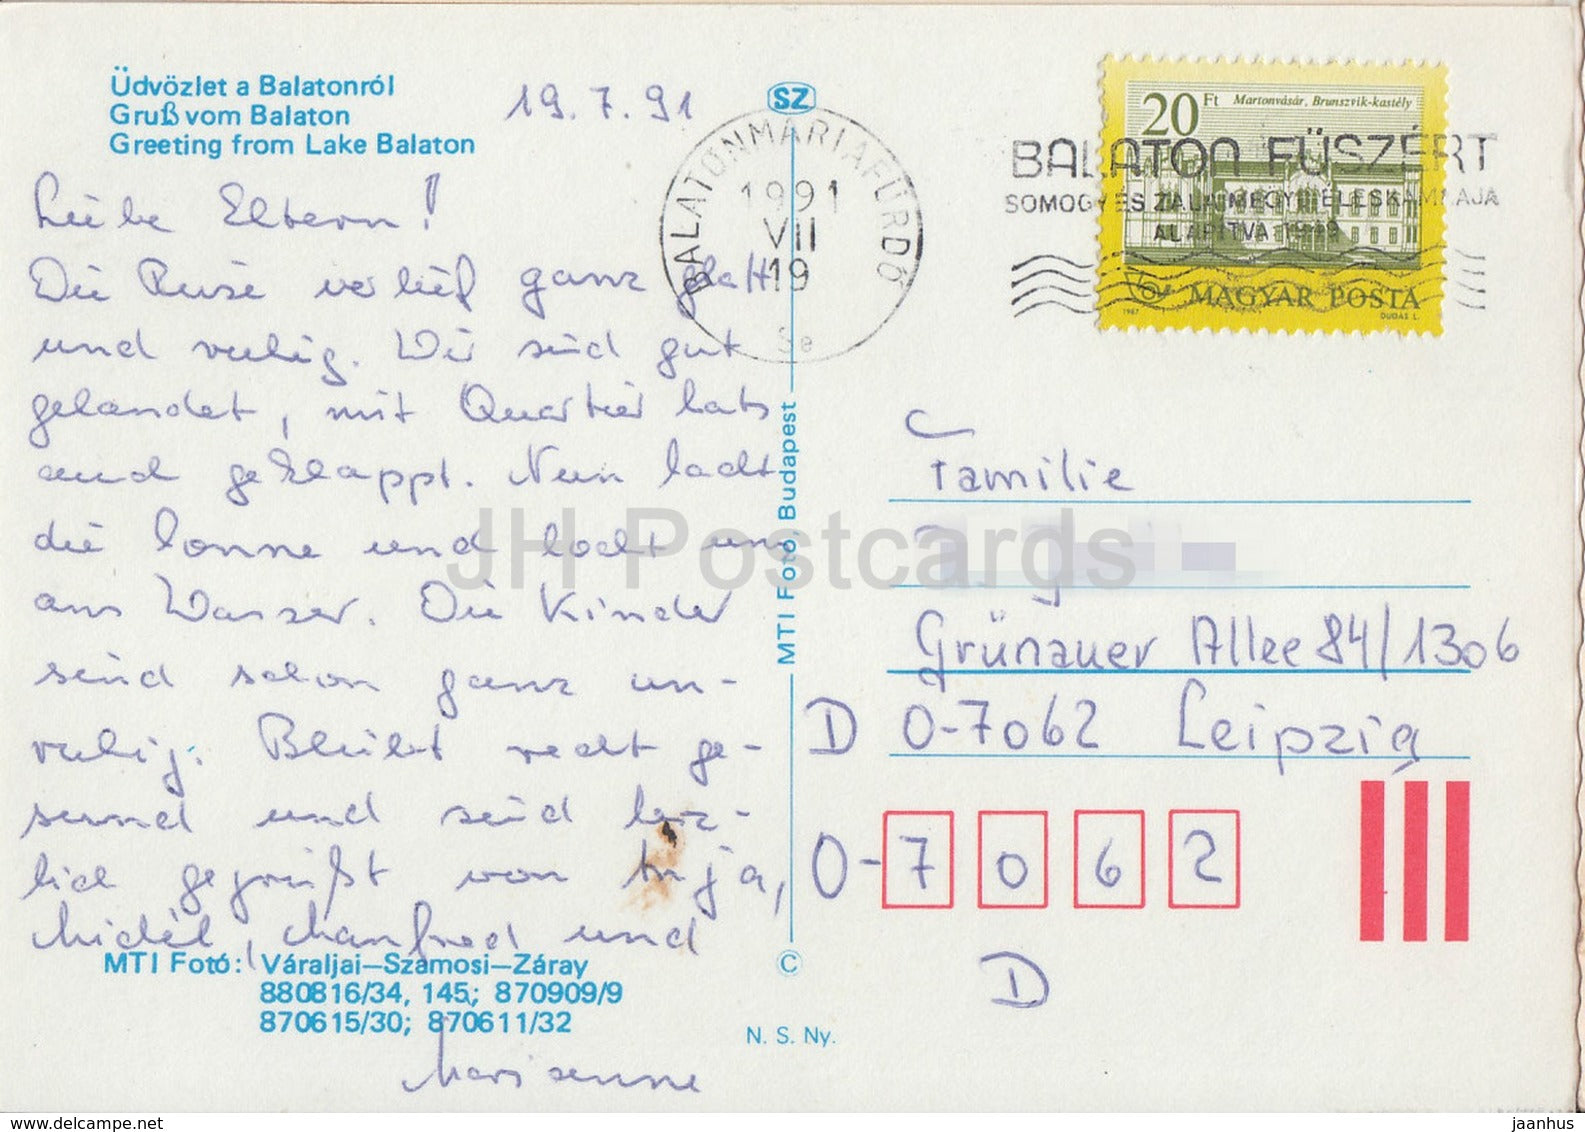 Üdvözlet a Balatonról
Gruß vom Balaton
Greeting from Lake Balaton
19.7.91
Liebe Eltern!
Die Reise verlief ganz glatt
und ruhig. Wir sind gut
gelandet, mit Quartier hats
auch geklappt. Nun lacht
die Sonne und lockt uns
ans Wasser. Die Kinder
sind schon ganz un-
ruhig. Bleibt recht ge-
sund und seid herz-
lich gegrüßt von Anja,
Michél, Manfred und
Marianne
MTI Fotó: Váraljai–Szamosi–Záray
880816/34, 145; 870909/9
870615/30; 870611/32
SZ
BALATONMÁRIAFÜRDŐ
1991
VII
19
MTI Fotó, Budapest
©
N. S. Ny.
20 Ft Martonvásár, Brunszvik-kastély
MAGYAR POSTA
1987 DUDÁS L.
BALATON FÜSZÉRT
SOMOGY ÉS ZALA MEGYE ÉLÉSKAMRÁJA
ALAPÍTVA
Familie
Grünauer Allee 84/1306
D O-7062 Leipzig
O-7062
D
JH Postcards
www.delcampe.net
jaanhus